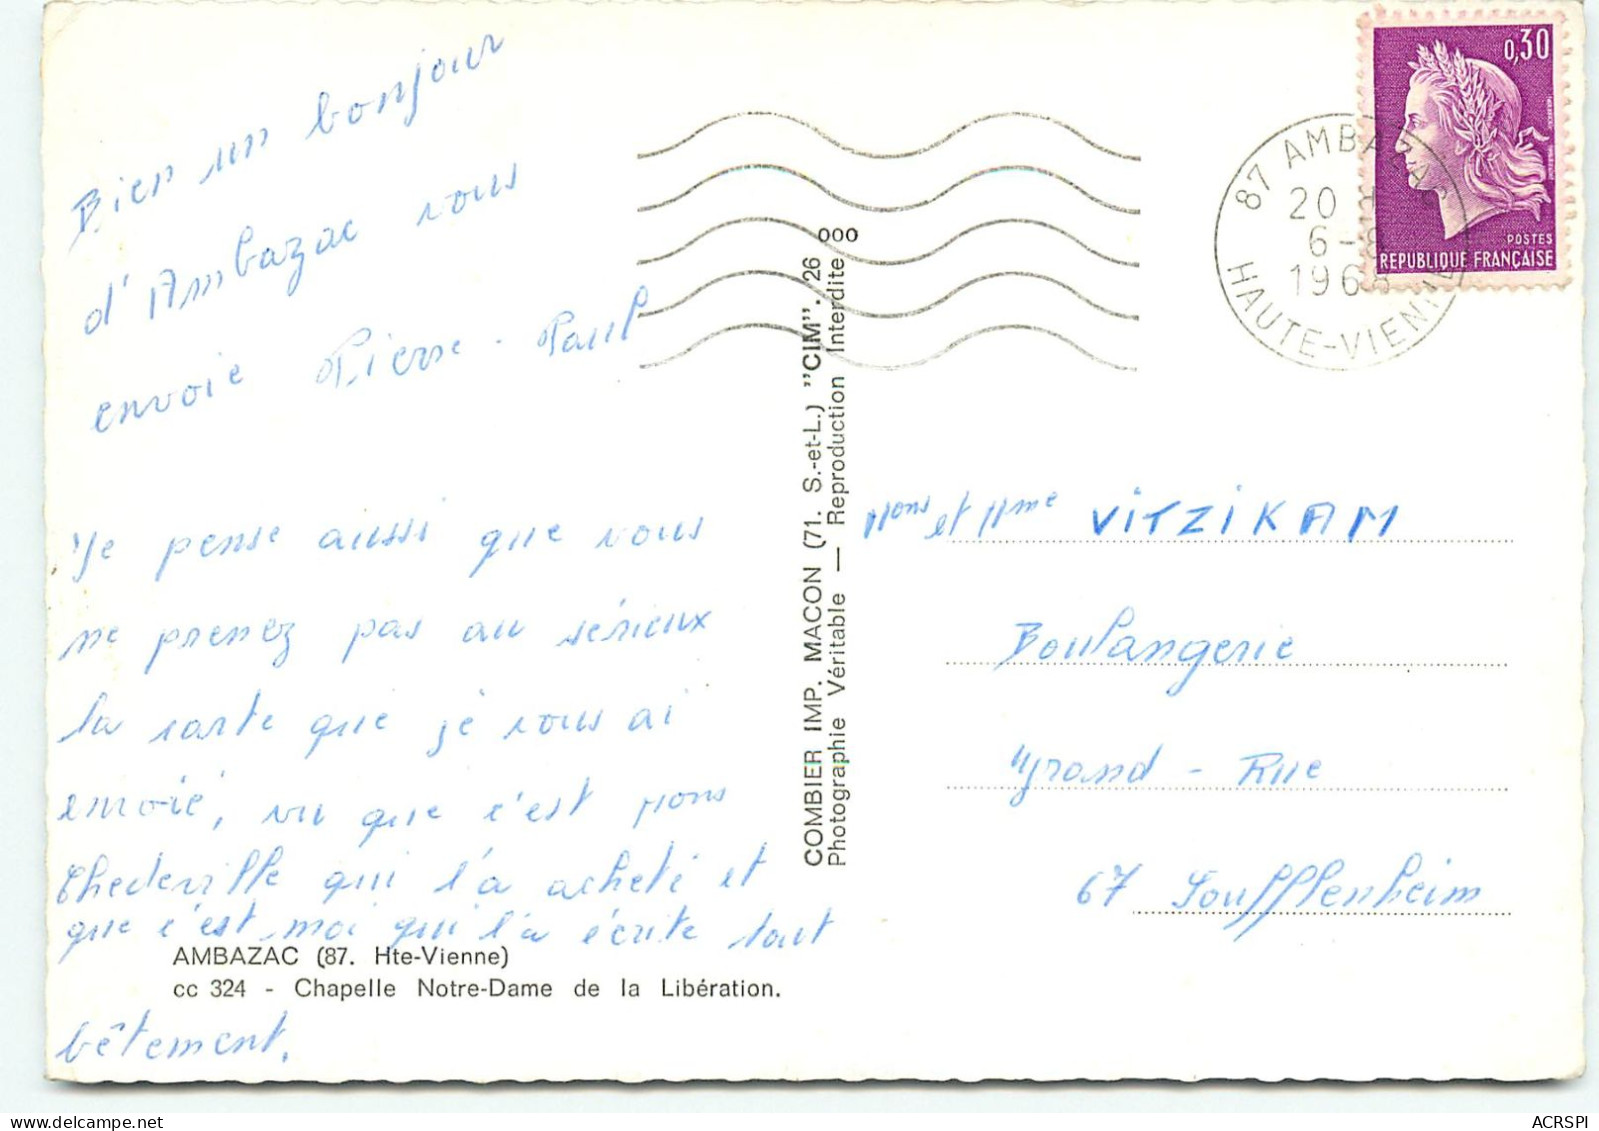 Bien un bonjour
d'Ambazac vous
envoie Pierre-Paul
Je pense aussi que vous
ne prenez pas au sérieux
la carte que je vous ai
envoié, vu que c'est Mons
Thedeville qui l'a acheté et
que c'est moi qui l'a écrite tout
bêtement.
AMBAZAC (87. Hte-Vienne)
cc 324 - Chapelle Notre-Dame de la Libération.
COMBIER IMP. MACON (71. S.-et-L.) "CIM". 26 000
Photographie Véritable — Reproduction Interdite
0,30
POSTES
REPUBLIQUE FRANÇAISE
87 AMBAZAC
20 H
6-8
1968
HAUTE-VIENNE
Mons et Mme VITZIKAM
Boulangerie
Grand-Rue
67 Soufflenheim
ACRSPI